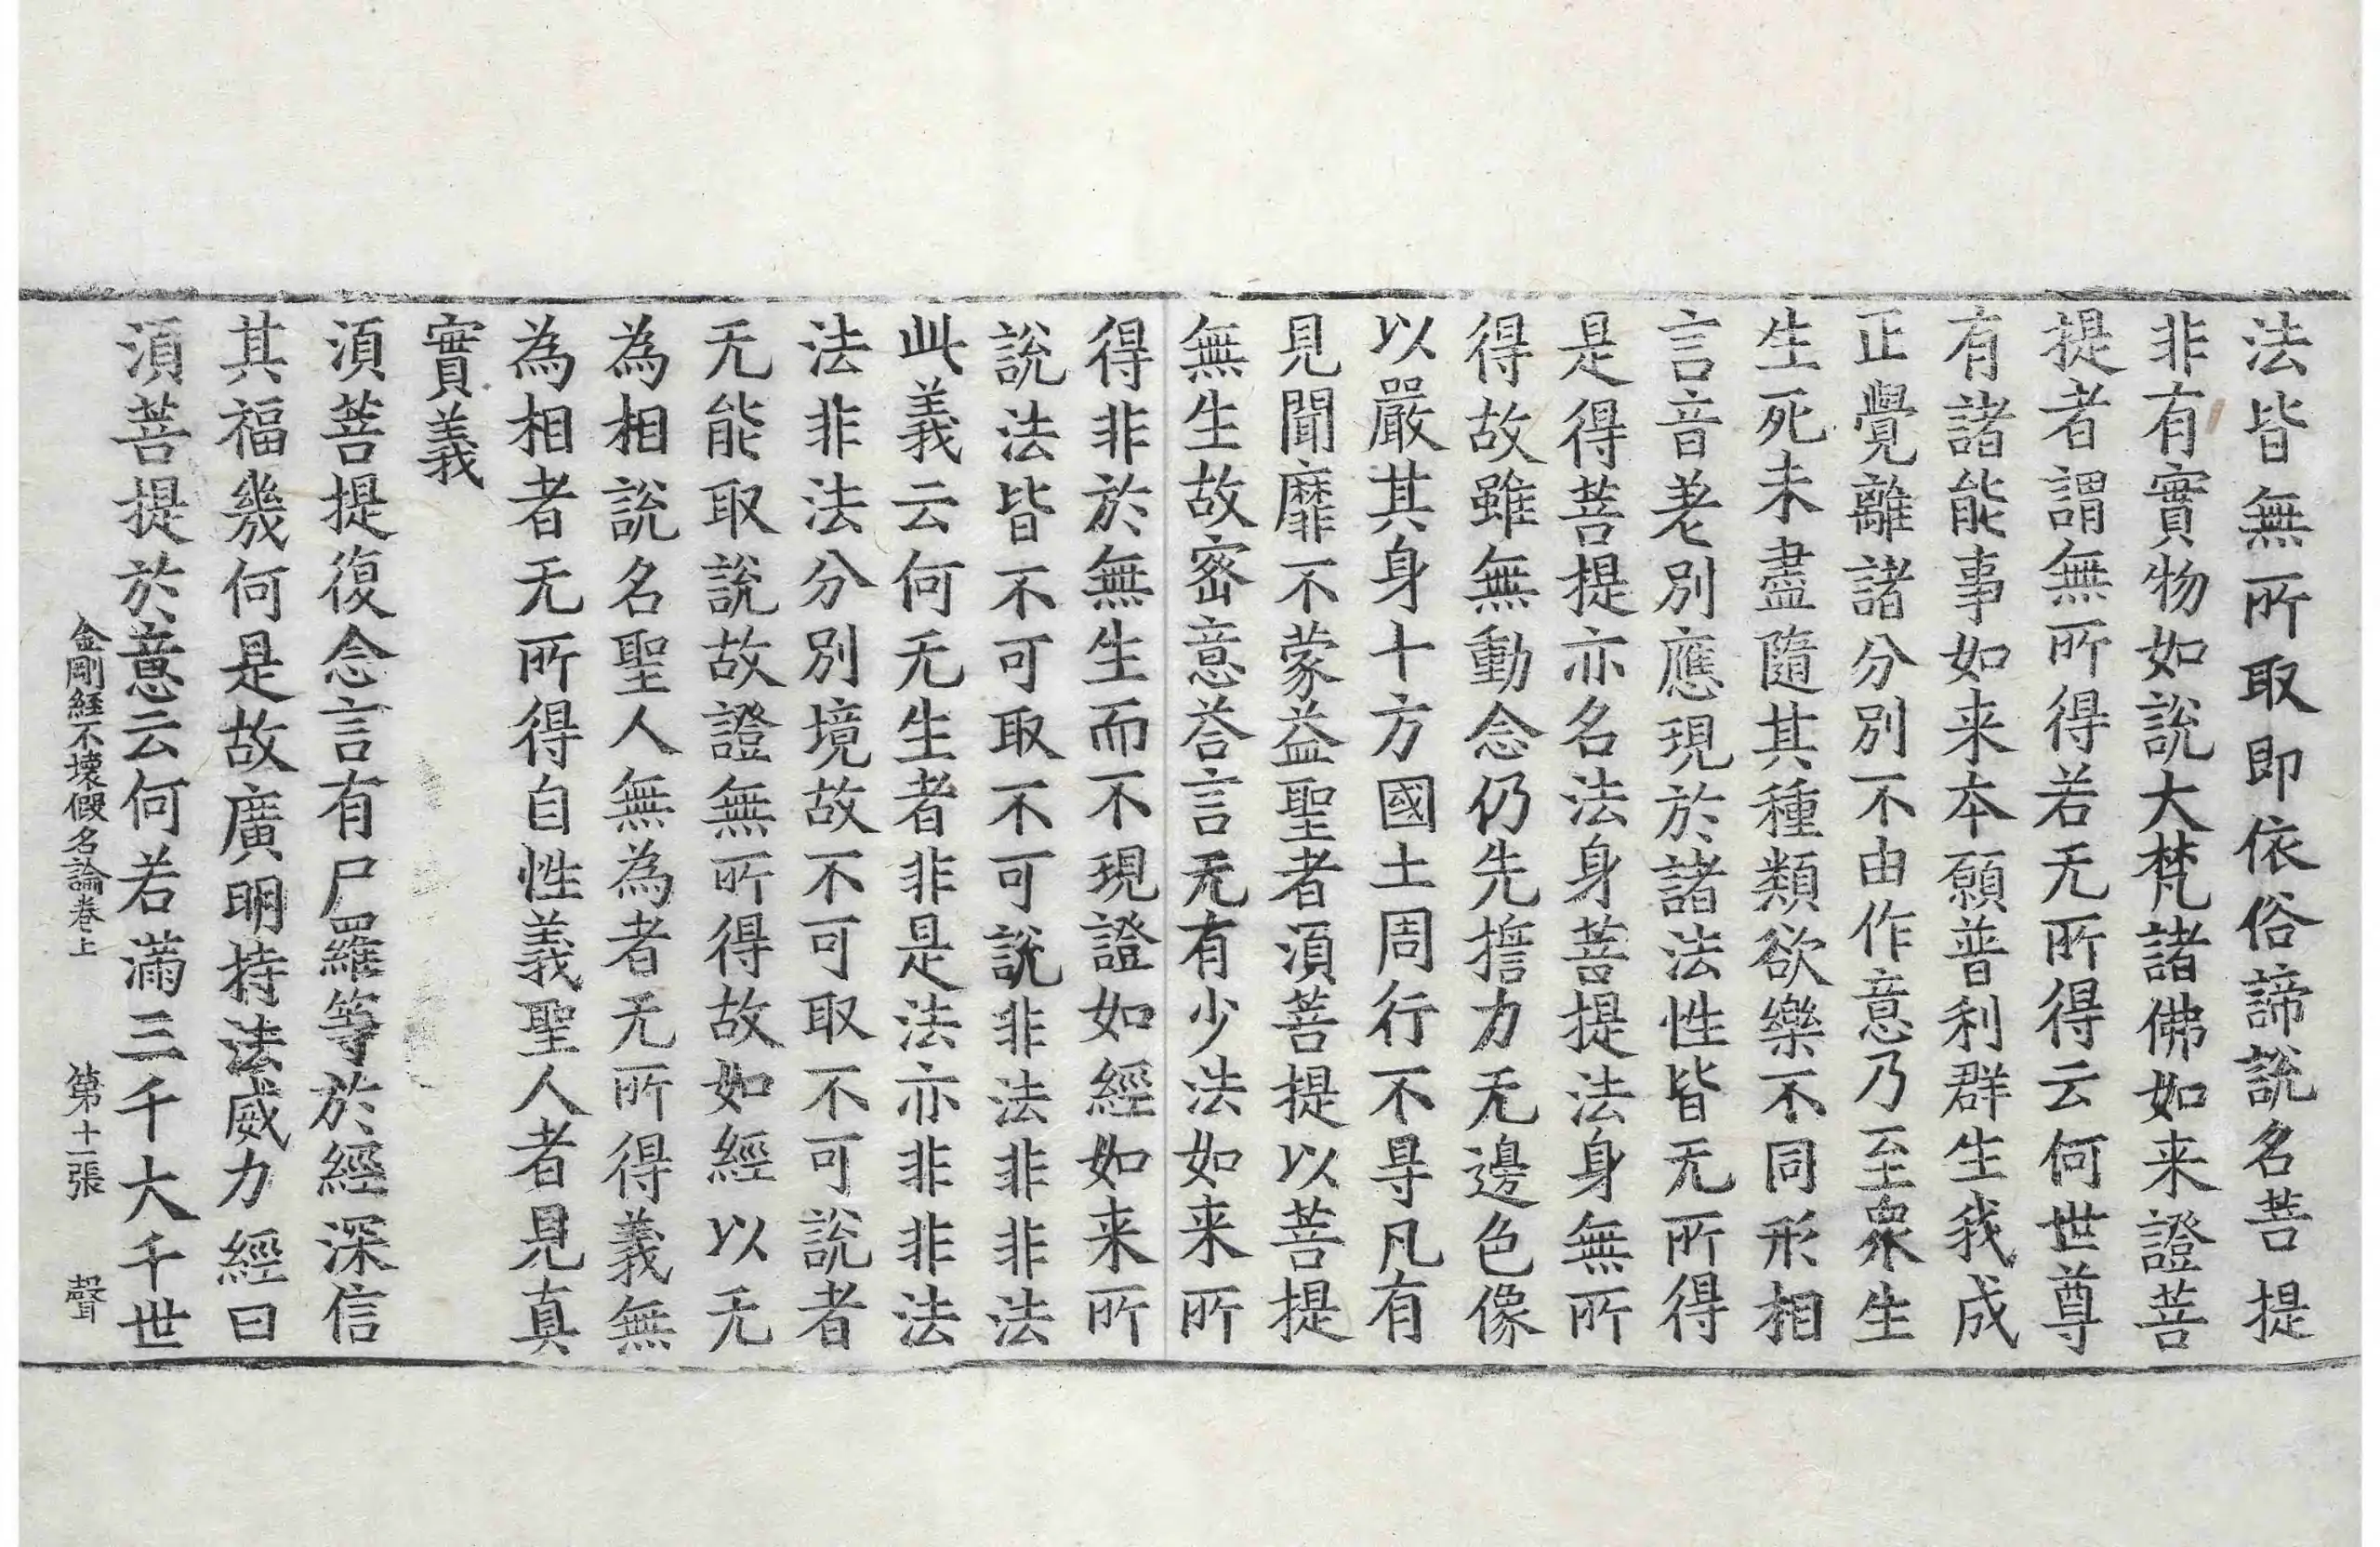 法皆無所取即依俗諦說名菩提
非有實物如說大梵諸佛如来證菩
提者謂無所得若无所得云何世尊
有諸能事如来本願普利群生我成
正覺離諸分別不由作意乃至衆生
生死未盡隨其種類欲樂不同形相
言音差別應現於諸法性皆无所得
是得菩提亦名法身菩提法身無所
得故雖無動念仍先擔力无邊色像
以嚴其身十方國土周行不㝵凡有
見聞靡不蒙益聖者湏菩提以菩提
無生故密意荅言无有少法如来所
得非於無生而不現證如經如来所
說法皆不可取不可說非法非非法
此義云何无生者非是法亦非非法
法非法分別境故不可取不可說者
无能取說故證無所得故如經以无
為相說名聖人無為者无所得義無
為相者无所得自性義聖人者見真
實義
湏菩提復念言有尸羅等於經深信
其福幾何是故廣明持法威力經曰
湏菩提於意云何若滿三千大千世
金剛経不壊假名論卷上 第十二張 聲